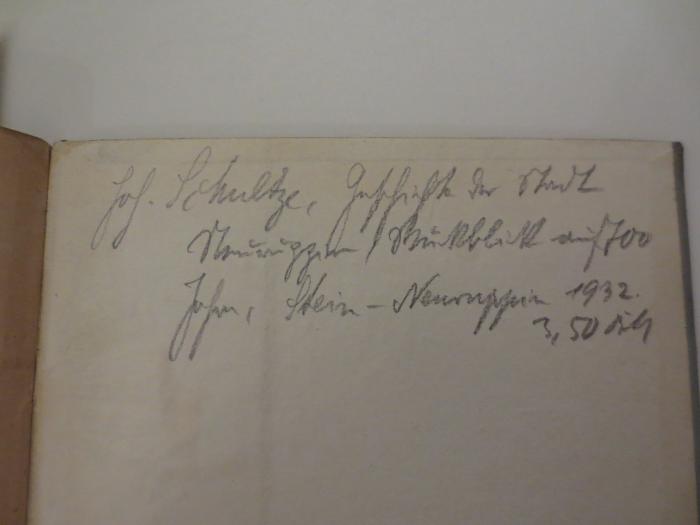 Joh. Schultze, Geschichte der Stadt
Neuruppin / Rückblick auf 700
Jahre, Stein - Neuruppin 1932.
3,50